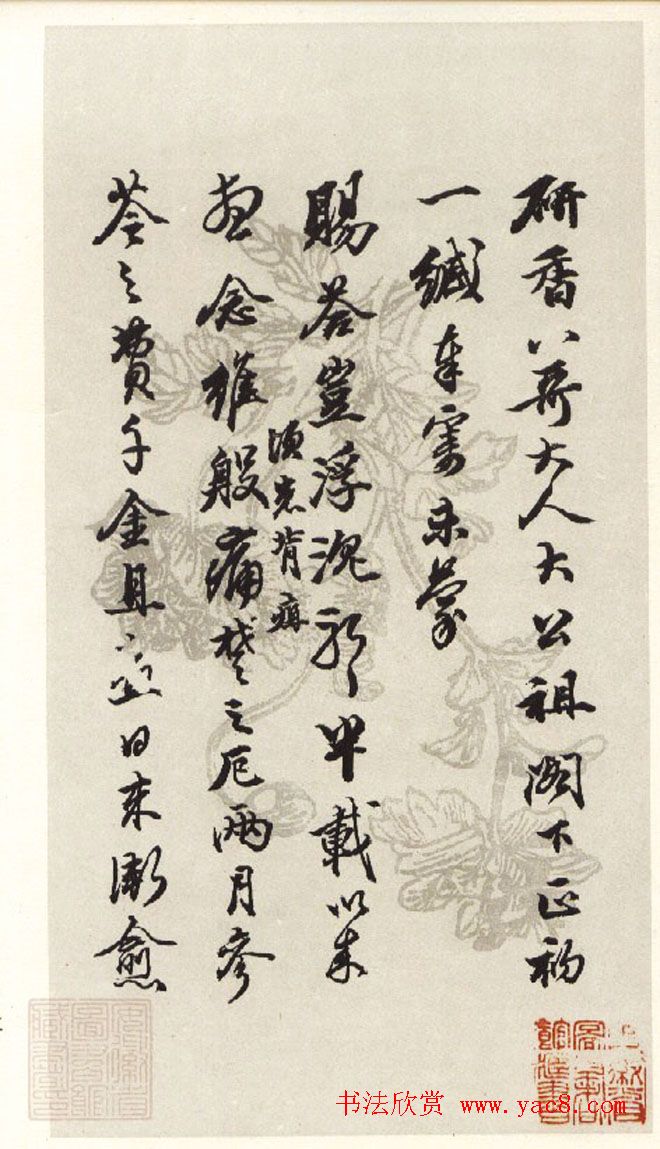 研香八哥大人大公祖閣下正初
一緘奉寄未蒙
賜荅豈浮沈耶半載以來
念維殷痛楚之厄兩月參
頃患背
苓之費千金且日來漸愈
书法欣赏 www.yac8.com